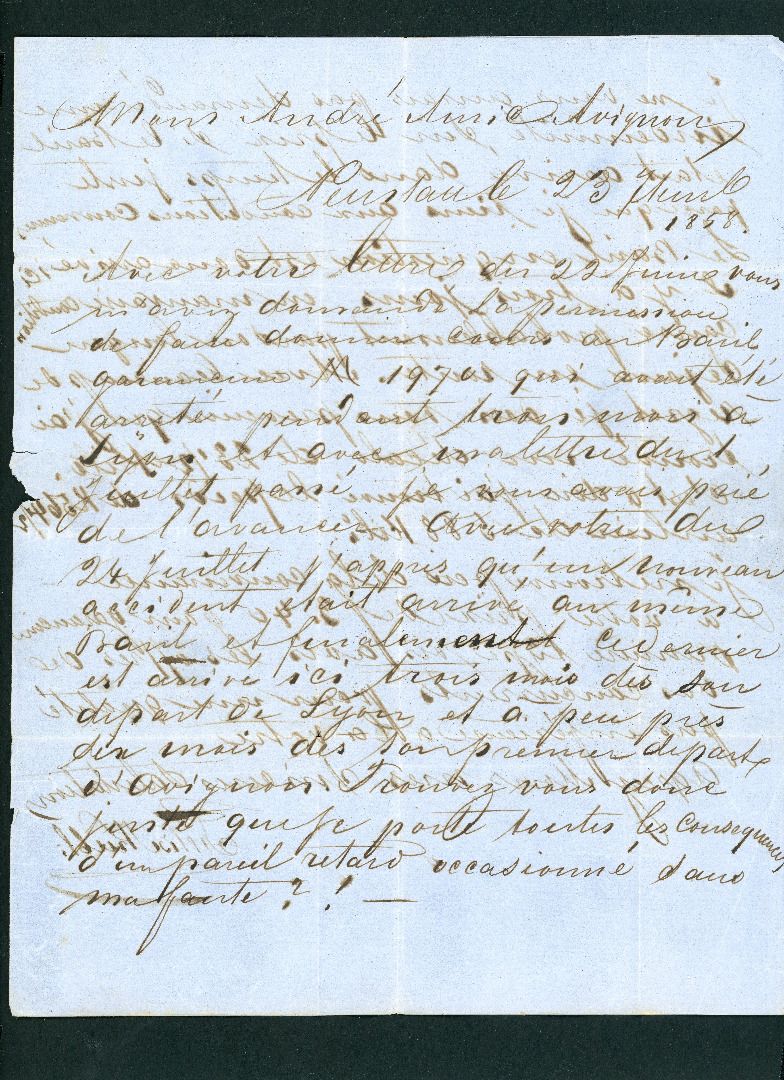 Mons André Amic Avignon
Neustadt le 23 Avril
1858.
Avec votre lettre du 22 Juin vous
m'avez demandé la permission
de faire donner cours au Baril
garancine N 1970 qui avait été
arrêté pendant trois mois à
Lÿon et avec ma lettre du 1
Juillet passé je vous avais prié
de l'avancer. Avec votre du
24 Juillet j'appris qu'un nouveau
accident était arrivé au même
Baril et finalement ce dernier
est arrivé ici trois mois dès son
départ de Lÿon et à peu près
dix mois dès son premier départ
d'Avignon. Trouvez vous donc
juste que je porte toutes les consequences
d'un pareil retard occasionné sans
ma faute? ! —